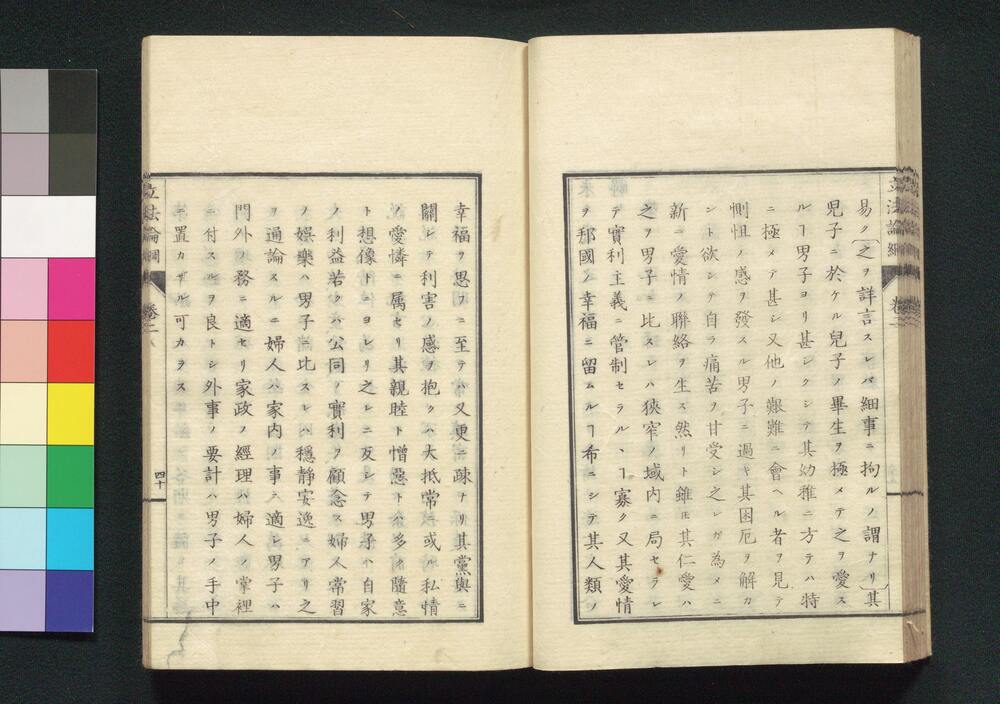 易ク〔之ヲ詳言スレバ細事ニ拘ルノ謂ナリ〕其
兒子ニ於ケル兒子ノ畢生ヲ極メテ之ヲ愛ス
ルヿ男子ヨリ甚シクシテ其幼稚ニ方テハ特
ニ極メテ甚シ又他ノ艱難ニ會ヘル者ヲ見テ
惻怛ノ感ヲ發スル男子ニ過キ其困厄ヲ解カ
ント欲シテ自ラ痛苦ヲ甘受シ之レガ為メニ
新ニ愛情ノ聯絡ヲ生ス然リト雖𪜈其仁愛ハ
之ヲ男子ニ比スレハ狹窄ノ域内ニ局セラレ
テ實利主義ニ管制セラルヽヿ寡ク又其愛情
ヲ邦國ノ幸福ニ留ムルヿ希ニシテ其人類ノ
立法論綱
卷二
幸福ヲ思フニ至テハ又更ニ疎ナリ其黨與ニ
關シテ利害ノ感ヲ抱クハ大抵常ニ或ル私情
ノ愛憐ニ属セリ其親睦ト憎惡トハ多ク隨意
ト想像トニヨレリ之レニ反シテ男子ハ自家
ノ利益若クハ公同ノ實利ヲ顧念ス婦人常習
ノ娯樂ハ男子ニ比スレハ穩靜安逸ニアリ之
ヲ通論スルニ婦人ハ家内ノ事ニ適シ男子ハ
門外ノ務ニ適セリ家政ノ經理ハ婦人ノ掌裡
ニ付スルヲ良トシ外事ノ要計ハ男子ノ手中
ニ置カザル可カラス
立法論綱
卷二
四十